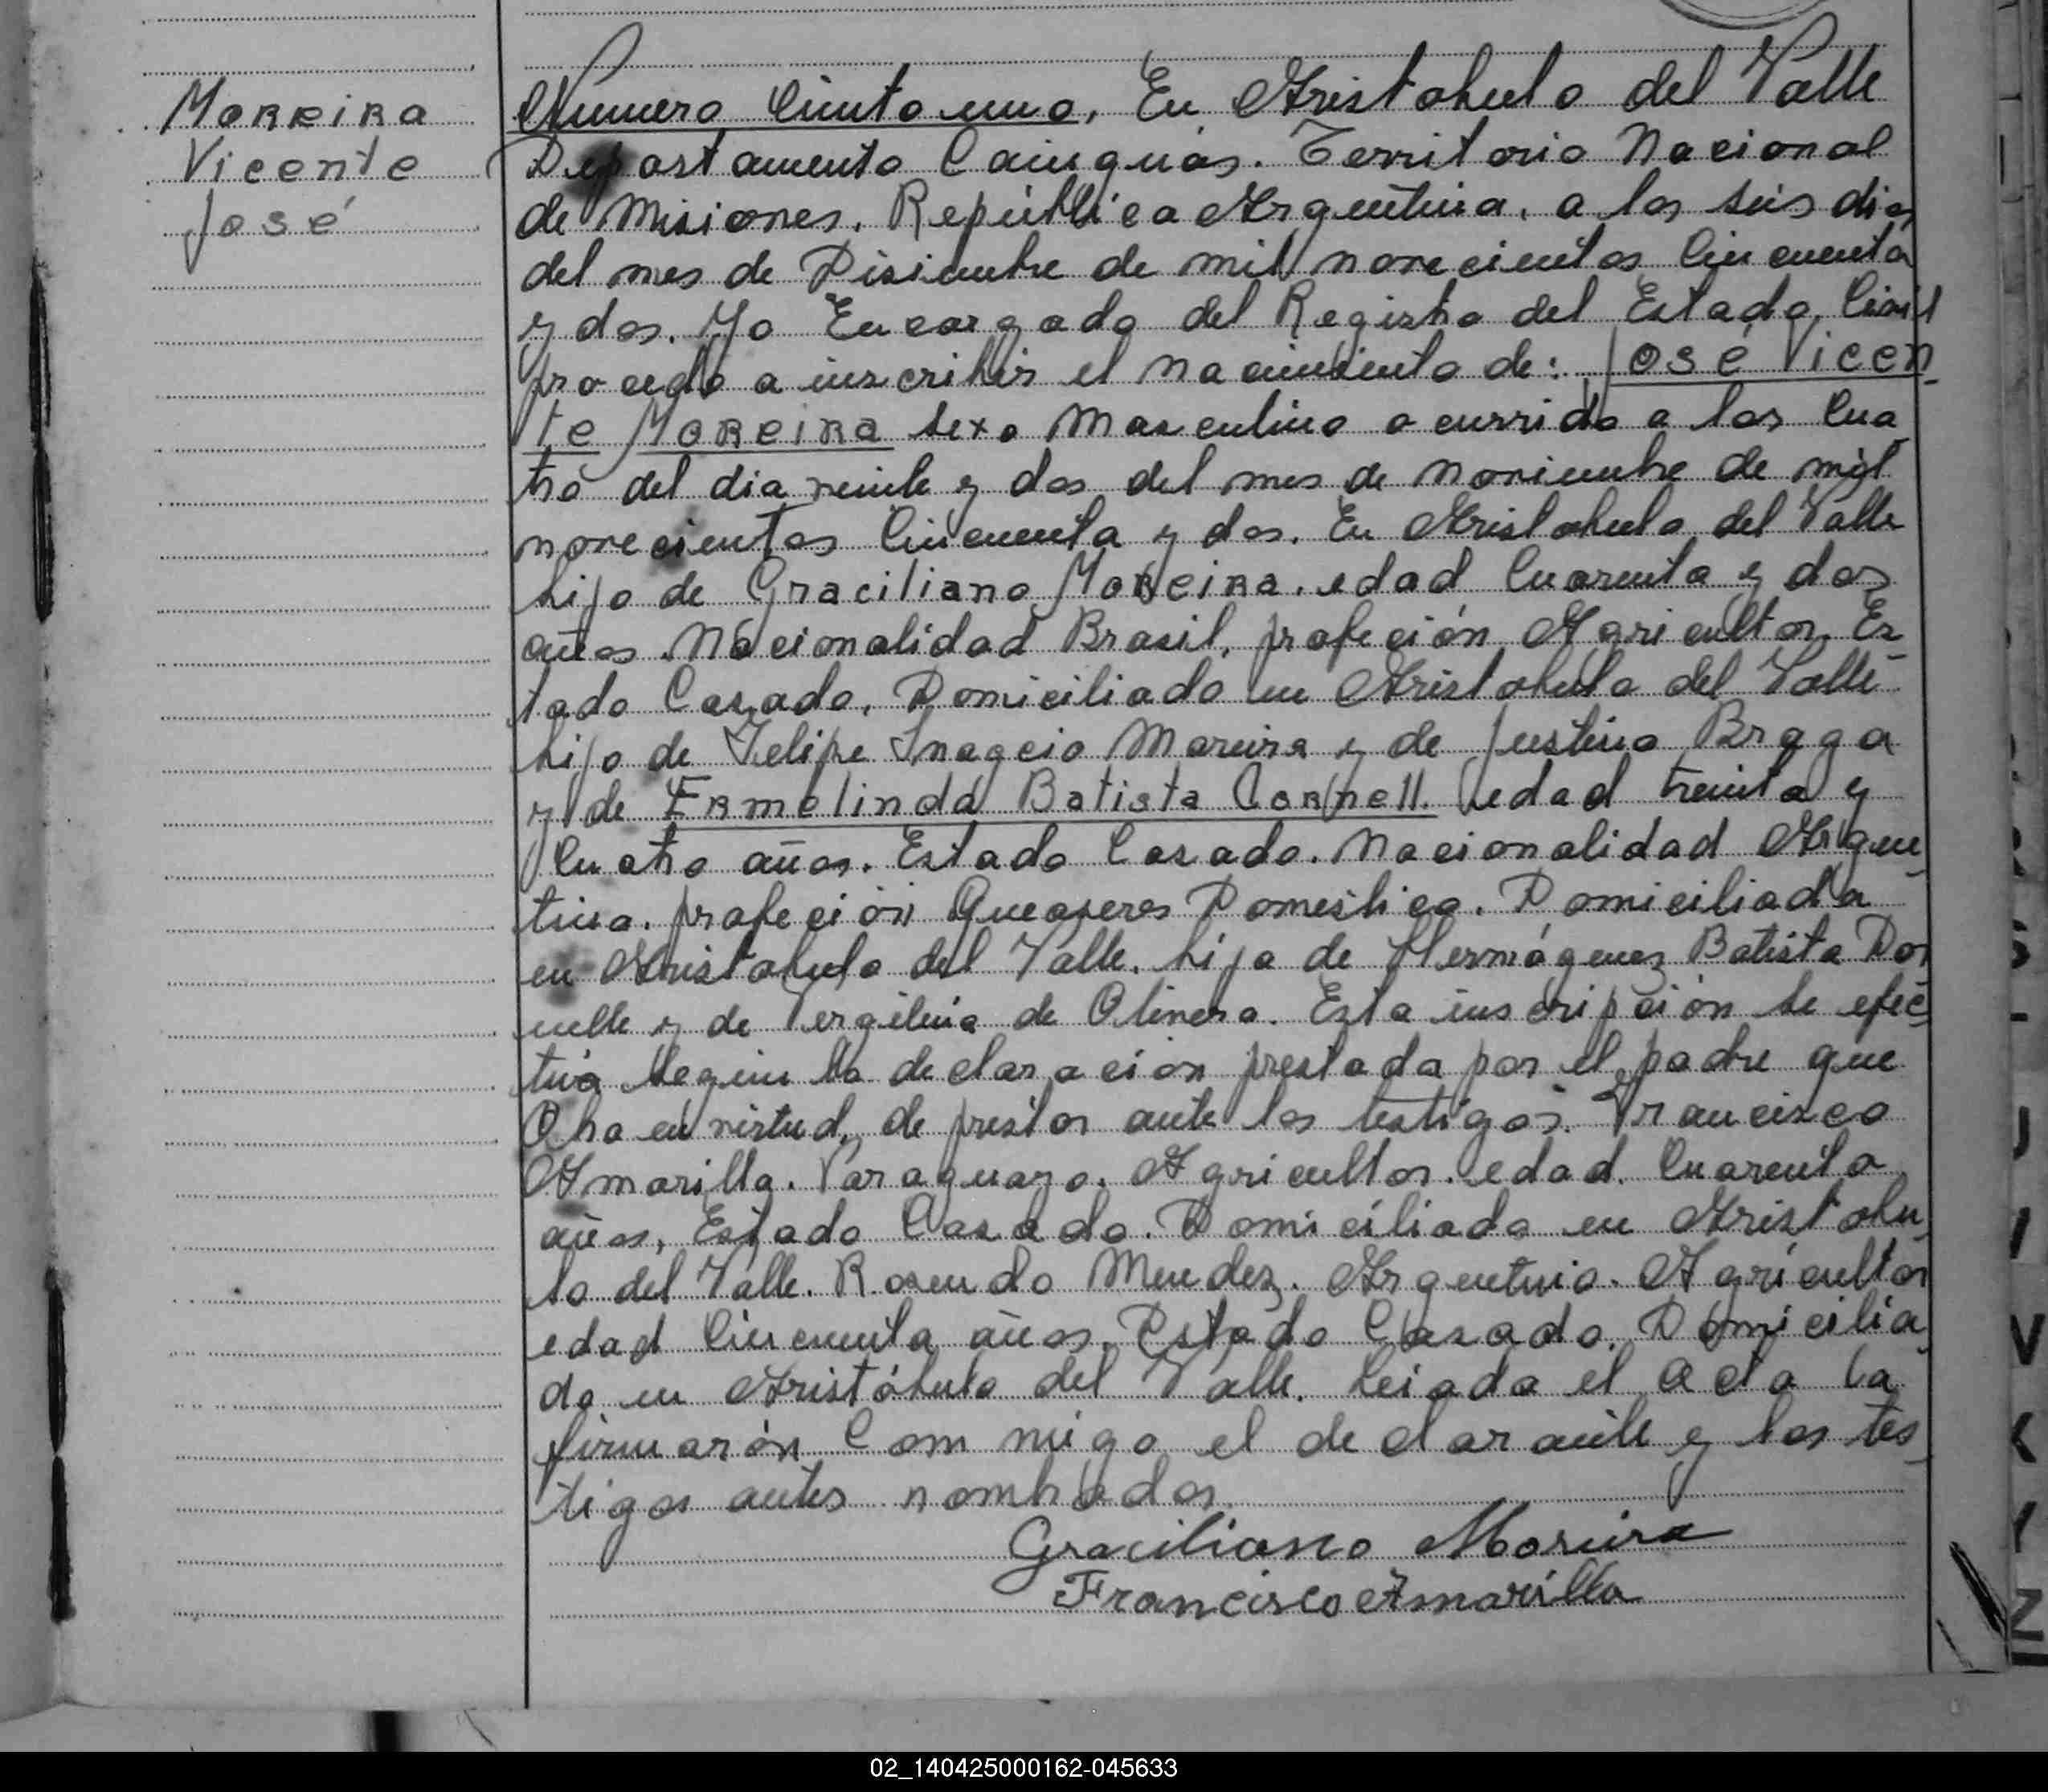 Moreira
Vicente
José
Numero Ciento uno. En Aristobulo del Valle
Departamento Cainguas. Territorio Nacional
de Misiones. República Argentina. a los seis dias
del mes de Disiembre de mil novecientos Cincuenta
y dos. Yo Encargado del Registro del Estado Civil
procedo a inscribir el nacimiento de: José Vicen-
te Moreira sexo Masculino ocurrido a las Cua
tro del dia veinte y dos del mes de noviembre de mil
novecientos Cincuenta y dos. En Aristobulo del Valle
hijo de Graciliano Moreira. edad Cuarenta y dos
años. Nacionalidad Brasil. profeción Agricultor. Es-
tado Casado. Domiciliado en Aristobulo del Valle
hijo de Felipe Inagcio Moreira y de Justino Braga
y de Ermelinda Batista Cornell. edad treinta y
Cuatro años. Estado Casado. Nacionalidad Argen-
tina. profeción Queaseres Domestico. Domiciliada
en Aristobulo del Valle. hija de Hermógenez Batista Dor
nelle y de Vergilina de Olivera. Esta inscripción se efec-
tuó segun la declaración prestada por el padre que
Obra en virtud, de prestar ante los testigos. Francisco
Amarilla. Paraguayo. Agricultor. edad. Cuarenta
años, Estado Casado. Domiciliado en Aristobu-
lo del Valle. Rosendo Mendez. Argentino. Agricultor
edad Cincuenta años. Estado Casado. Domicilia-
do en Aristóbulo del Valle. Leiada el acta la
firmarón Com migo el declarante y los tes-
tigos antes nombrados.
Graciliano Moreira
Francisco Amarilla
02_140425000162-045633